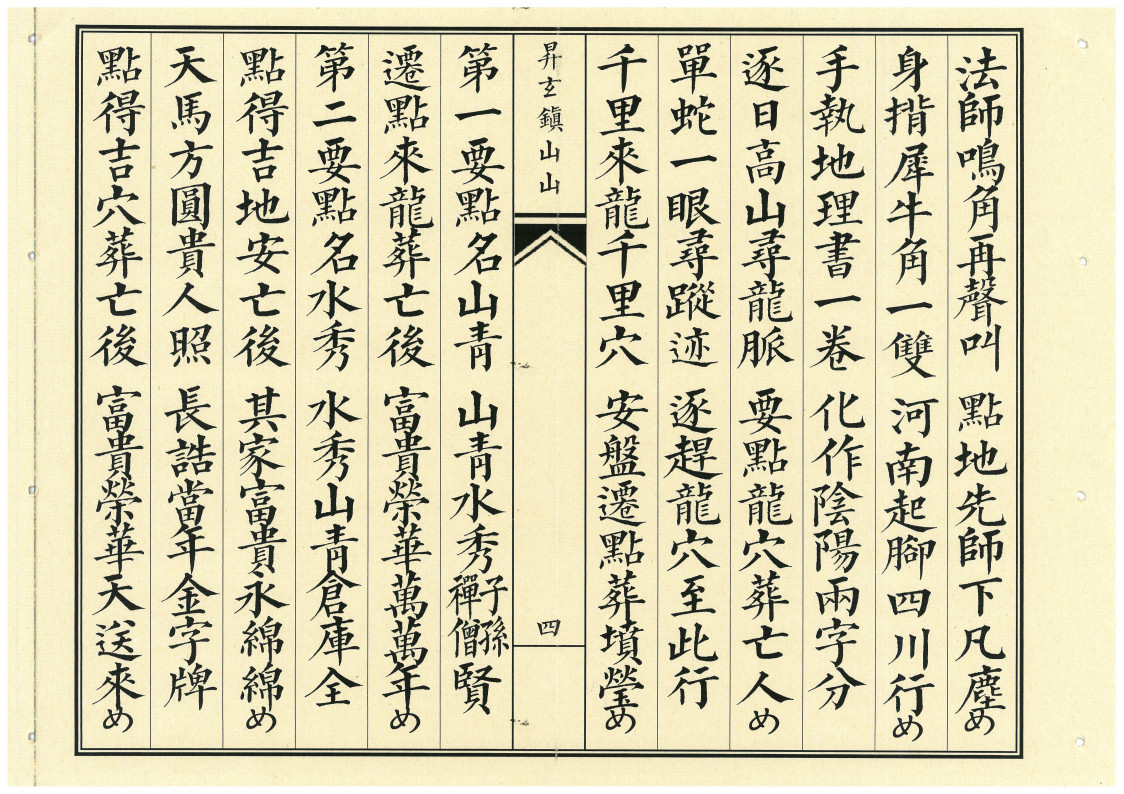 法師鳴角再聲叫 點地先師下凡塵め
身揹犀牛角一雙 河南起腳四川行め
手執地理書一卷 化作陰陽兩字分
逐日高山尋龍脈 要點龍穴葬亡人め
單蛇一眼尋蹤迹 逐趕龍穴至此行
千里來龍千里穴 安盤遷點葬墳瑩め
昇玄鎮山山 四
第一要點名山青 山青水秀子孫禪僧賢
遷點來龍葬亡後 富貴榮華萬萬年め
第二要點名水秀 水秀山青倉庫全
點得吉地安亡後 其家富貴永綿綿め
天馬方圓貴人照 長誥當年金字牌
點得吉穴葬亡後 富貴榮華天送來め